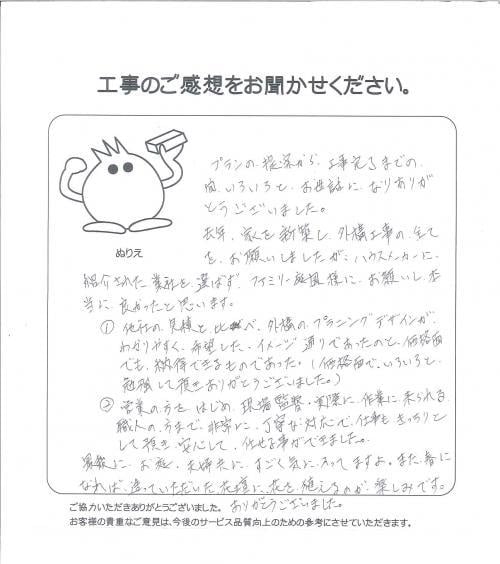 工事のご感想をお聞かせください。
ぬりえ
プランの提案から、工事完了までの
間、いろいろと、お世話に、なりありが
とうございました。
去年、家を新築し、外構工事の全て
を、お願いしましたが、ハウスメーカーに、
紹介された業社を選ばず、ファミリー庭園様に、お願いし本
当に良かったと思います。
① 他社の見積と比べ、外構の、プランニングデザインが、
わかりやすく、希望した、イメージ通りであったのと、価格面
でも、納得できるものであった。(価格面で、いろいろと、
勉強して頂きありがとうございました。)
② 営業の方を、はじめ、現場監督・実際に、作業に来られる、
職人の方まで、非常に、丁寧な対応で、仕事も、きっちりと
して頂き、安心して、任せる事ができました。
最後に、お庭、夫婦共に、すごく気に入ってますよ。また、春に
なれば、造っていただいた、花壇に、花を、植えるのが、楽しみです。
ありがとうございました。
ご協力いただきありがとうございました。
お客様の貴重なご意見は、今後のサービス品質向上のための参考にさせていただきます。